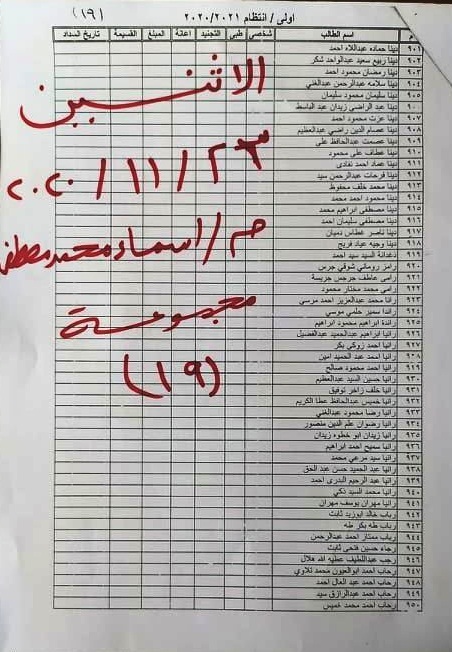 (١٩)
اولى / انتظام ٢٠٢٠/٢٠٢١
م اسم الطالب شخصي طبي التجنيد اعانة المبلغ القسيمة تاريخ السداد
٩٠١ دينا حماده عبداللاه احمد
٩٠٢ دينا ربيع سعيد عبدالواحد شكر
٩٠٣ دينا رمضان محمود احمد
٩٠٤ دينا سلامه عبدالرحمن عبدالغني
٩٠٥ دينا سليمان محمود سليمان
٩٠٦ دينا عبد الراضي زيدان عبد الباسط
٩٠٧ دينا عزت محمود احمد
٩٠٨ دينا عصام الدين راضي عبدالعظيم
٩٠٩ دينا عصمت عبدالحافظ على
٩١٠ دينا عطاف على محمود
٩١١ دينا عماد احمد نفادى
٩١٢ دينا فرحات عبدالرحمن سيد
٩١٣ دينا محمد خلف محفوظ
٩١٤ دينا محمود احمد محمد
٩١٥ دينا مصطفى ابراهيم محمد
٩١٦ دينا مصطفى سليمان احمد
٩١٧ دينا ناصر عطاس دميان
٩١٨ دينا وجيه عياد فريج
٩١٩ السيد سيد احمد
٩٢٠ رامز روماني شوقي جرس
٩٢١ رامى عاطف جرجس
٩٢٢ رامى محمد مختار محمود
٩٢٣ رانا محمد عبدالعزيز احمد مرسي
٩٢٤ راندا سمير حلمي موسي
٩٢٥ راندة ابراهيم محمود ابراهيم
٩٢٦ رانيا ابراهيم عبدالحميد عبدالفضيل
٩٢٧ رانيا احمد زوكي بكر
٩٢٨ رانيا احمد عبد الحميد امين
٩٢٩ رانيا احمد محمود صالح
٩٣٠ رانيا حسين السيد عبدالعظيم
٩٣١ رانيا خلف زاخر توفيق
٩٣٢ رانيا خميس عبدالحافظ عطا الكريم
٩٣٣ رانيا رضا محمود عبدالغني
٩٣٤ رانيا رضوان علم الدين منصور
٩٣٥ رانيا زيدان ابو خطوه زيدان
٩٣٦ رانيا سميح احمد ابراهيم
٩٣٧ رانيا سيد مرعي محمد
٩٣٨ رانيا عبد الحميد حسن عبد الحق
٩٣٩ رانيا عبد الرحيم البدرى احمد
٩٤٠ رانيا محمد السيد ذكي
٩٤١ رانيا مهران يوسف مهران
٩٤٢ رباب خالد ابوزيد ثابت
٩٤٣ رباب طه بكر طه
٩٤٤ رباب ممتاز احمد عبدالرحمن
٩٤٥ رجاء حسين فتحى ثابت
٩٤٦ رجب عبداللطيف عطيه الله هلال
٩٤٧ رحاب احمد ابوالعيون محمد
٩٤٨ رحاب احمد عبد العال احمد
٩٤٩ رحاب احمد عبدالرازق سيد
٩٥٠ رحاب احمد محمد خميس
الاثنين
٢٣ / ١١ / ٢٠٢٠
م / اسماء محمد مصطفى
مجموعة
(١٩)